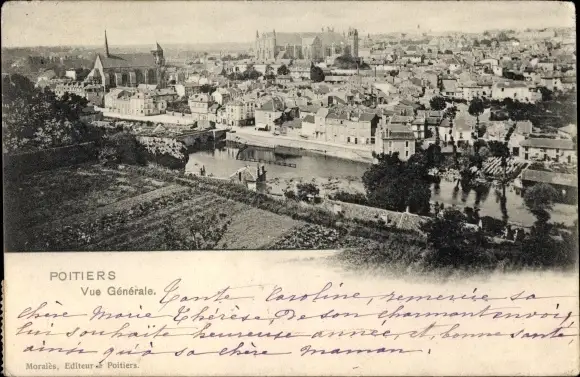 POITIERS
Vue Générale.
Tante Caroline, remercie sa
chère Marie Thérèse, De son charmant envoi,
lui souhaite heureuse année, et, bonne santé,
ainsi qu'à sa chère maman.
Moralès, Editeur à Poitiers.